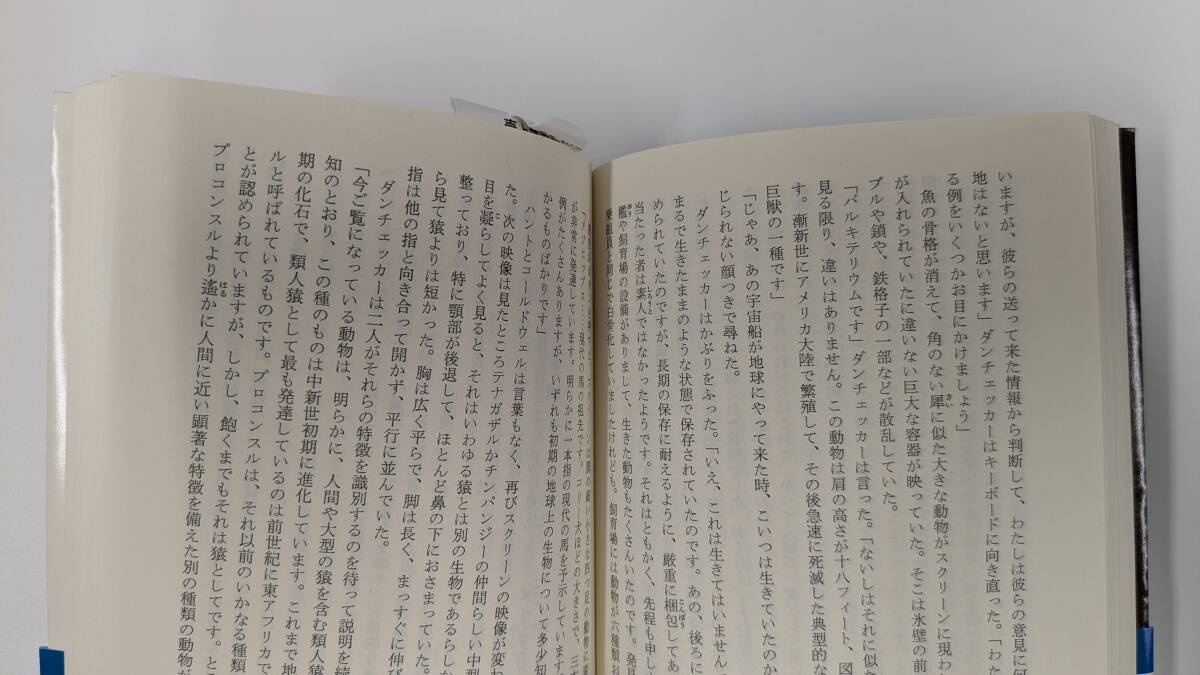 いますが、彼らの送って来た情報から判断して、わたしは彼らの意見に何
地はないと思います」ダンチェッカーはキーボードに向き直った。「わた
る例をいくつかお目にかけましょう」
魚の骨格が消えて、角のない犀に似た大きな動物がスクリーンに現わ
が入れられていたに違いない巨大な容器が映っていた。そこは氷壁の前
ブルや鎖や、鉄格子の一部などが散乱していた。
「バルキテリウムです」ダンチェッカーは言った。「ないしはそれに似た
見る限り、違いはありません。この動物は肩の高さが十八フィート、図
す。漸新世にアメリカ大陸で繁殖して、その後急速に死滅した典型的な
巨獣の一種です」
「じゃあ、あの宇宙船が地球にやって来た時、こいつは生きていたのか
じられない顔つきで尋ねた。
ダンチェッカーはかぶりをふった。「いえ、これは生きてはいません。
まるで生きたままのような状態で保存されていたのです。あの、後ろに
められていたのですが、長期の保存に耐えるように、厳重に梱包してあ
当たった者は素人ではなかったようです。それはともかく、先程も申し
檻や飼育場の設備がありまして、生きた動物もたくさんいたのです。発見
乗組員と同じで白骨化していましたけれども。飼育場には動物が六種類お
「メソヒップス……現代の馬の祖先です。コリー犬ほどの大きさで、三
が非常に発達しています。明らかに一本指の現代の馬を予示しています。
例がたくさんありますが、いずれも初期の地球上の生物について多少知
かるものばかりです」
ハントとコールドウェルは言葉もなく、再びスクリーンの映像が変わ
た。次の映像は見たところテナガザルかチンパンジーの仲間らしい中型
目を凝らしてよく見ると、それはいわゆる猿とは別の生物であるらしか
整っており、特に顎部が後退して、ほとんど鼻の下におさまっていた。
ら見て猿よりは短かった。胸は広く平らで、脚は長く、まっすぐに伸び
指は他の指と向き合って開かず、平行に並んでいた。
ダンチェッカーは二人がそれらの特徴を識別するのを待って説明を続
「今ご覧になっている動物は、明らかに、人間や大型の猿を含む類人猿
知のとおり、この種のものは中新世初期に進化しています。これまで地
期の化石で、類人猿として最も発達しているのは前世紀に東アフリカで
ルと呼ばれているものです。プロコンスルは、それ以前のいかなる種類
とが認められていますが、しかし、飽くまでもそれは猿としてです。と
プロコンスルより遙かに人間に近い顕著な特徴を備えた別の種類の動物が